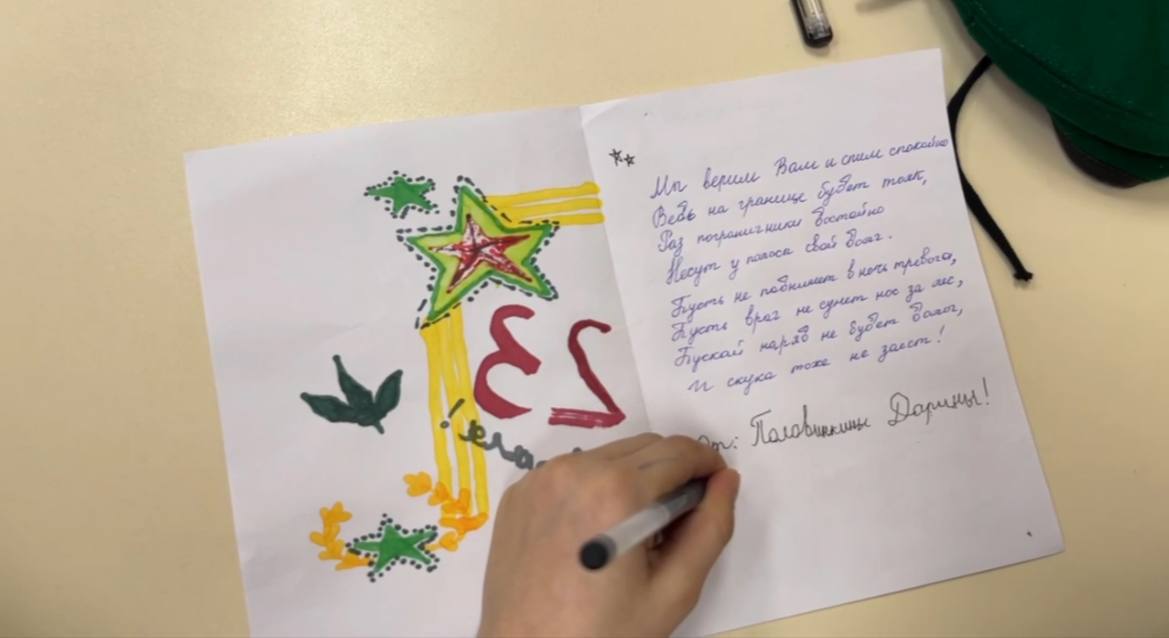 23
!
Мы верим Вам и спим спокойно
Ведь на границе будет толк,
Раз пограничники достойно
Несут у полоси свой долг.
Пусть не поднимет в ночь тревога,
Пусть враг не сунет нос за лес,
Пускай наряд не будет долог,
И скука тоже не заест!
От: Половинкины Дарины!